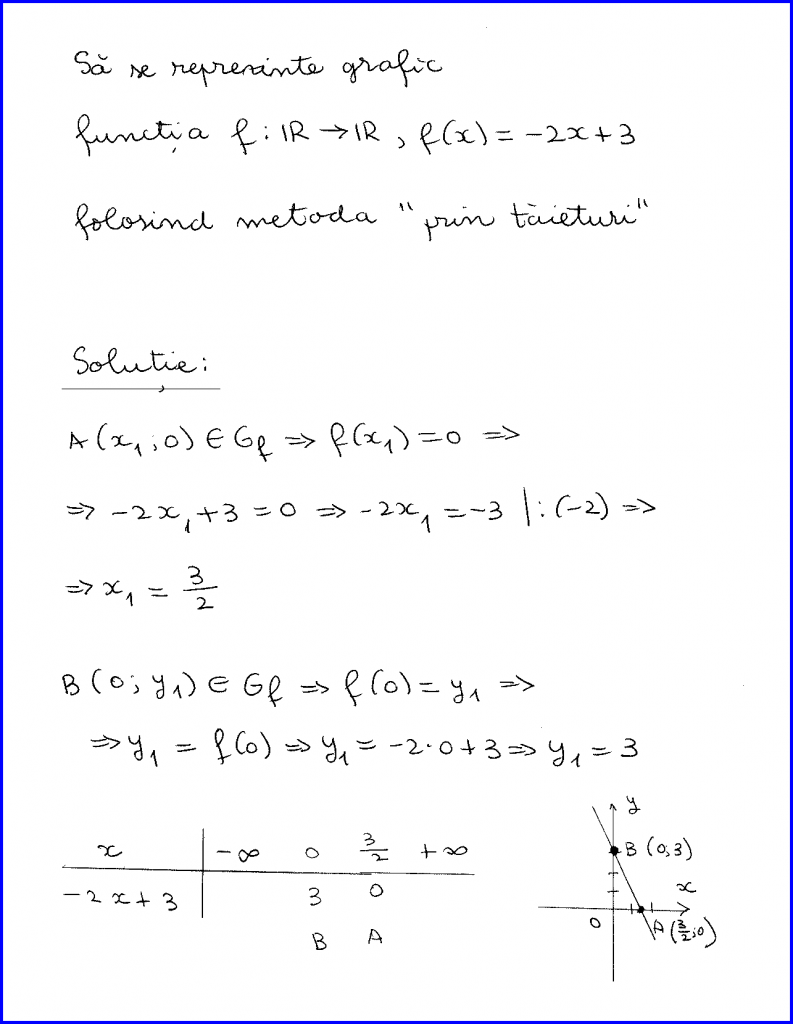 Să se reprezinte grafic
funcția f : ℝ → ℝ , f(x) = -2x + 3
folosind metoda "prin tăieturi"
Soluție:
A(x₁; 0) ∈ Gf ⇒ f(x₁) = 0 ⇒
⇒ -2x₁ + 3 = 0 ⇒ -2x₁ = -3 |: (-2) ⇒
⇒ x₁ = 3/2
B(0; y₁) ∈ Gf ⇒ f(0) = y₁ ⇒
⇒ y₁ = f(0) ⇒ y₁ = -2·0 + 3 ⇒ y₁ = 3
x | -∞ 0 3/2 +∞
-2x + 3 | 3 0
B A
y
B (0;3)
x
0
A (3/2;0)